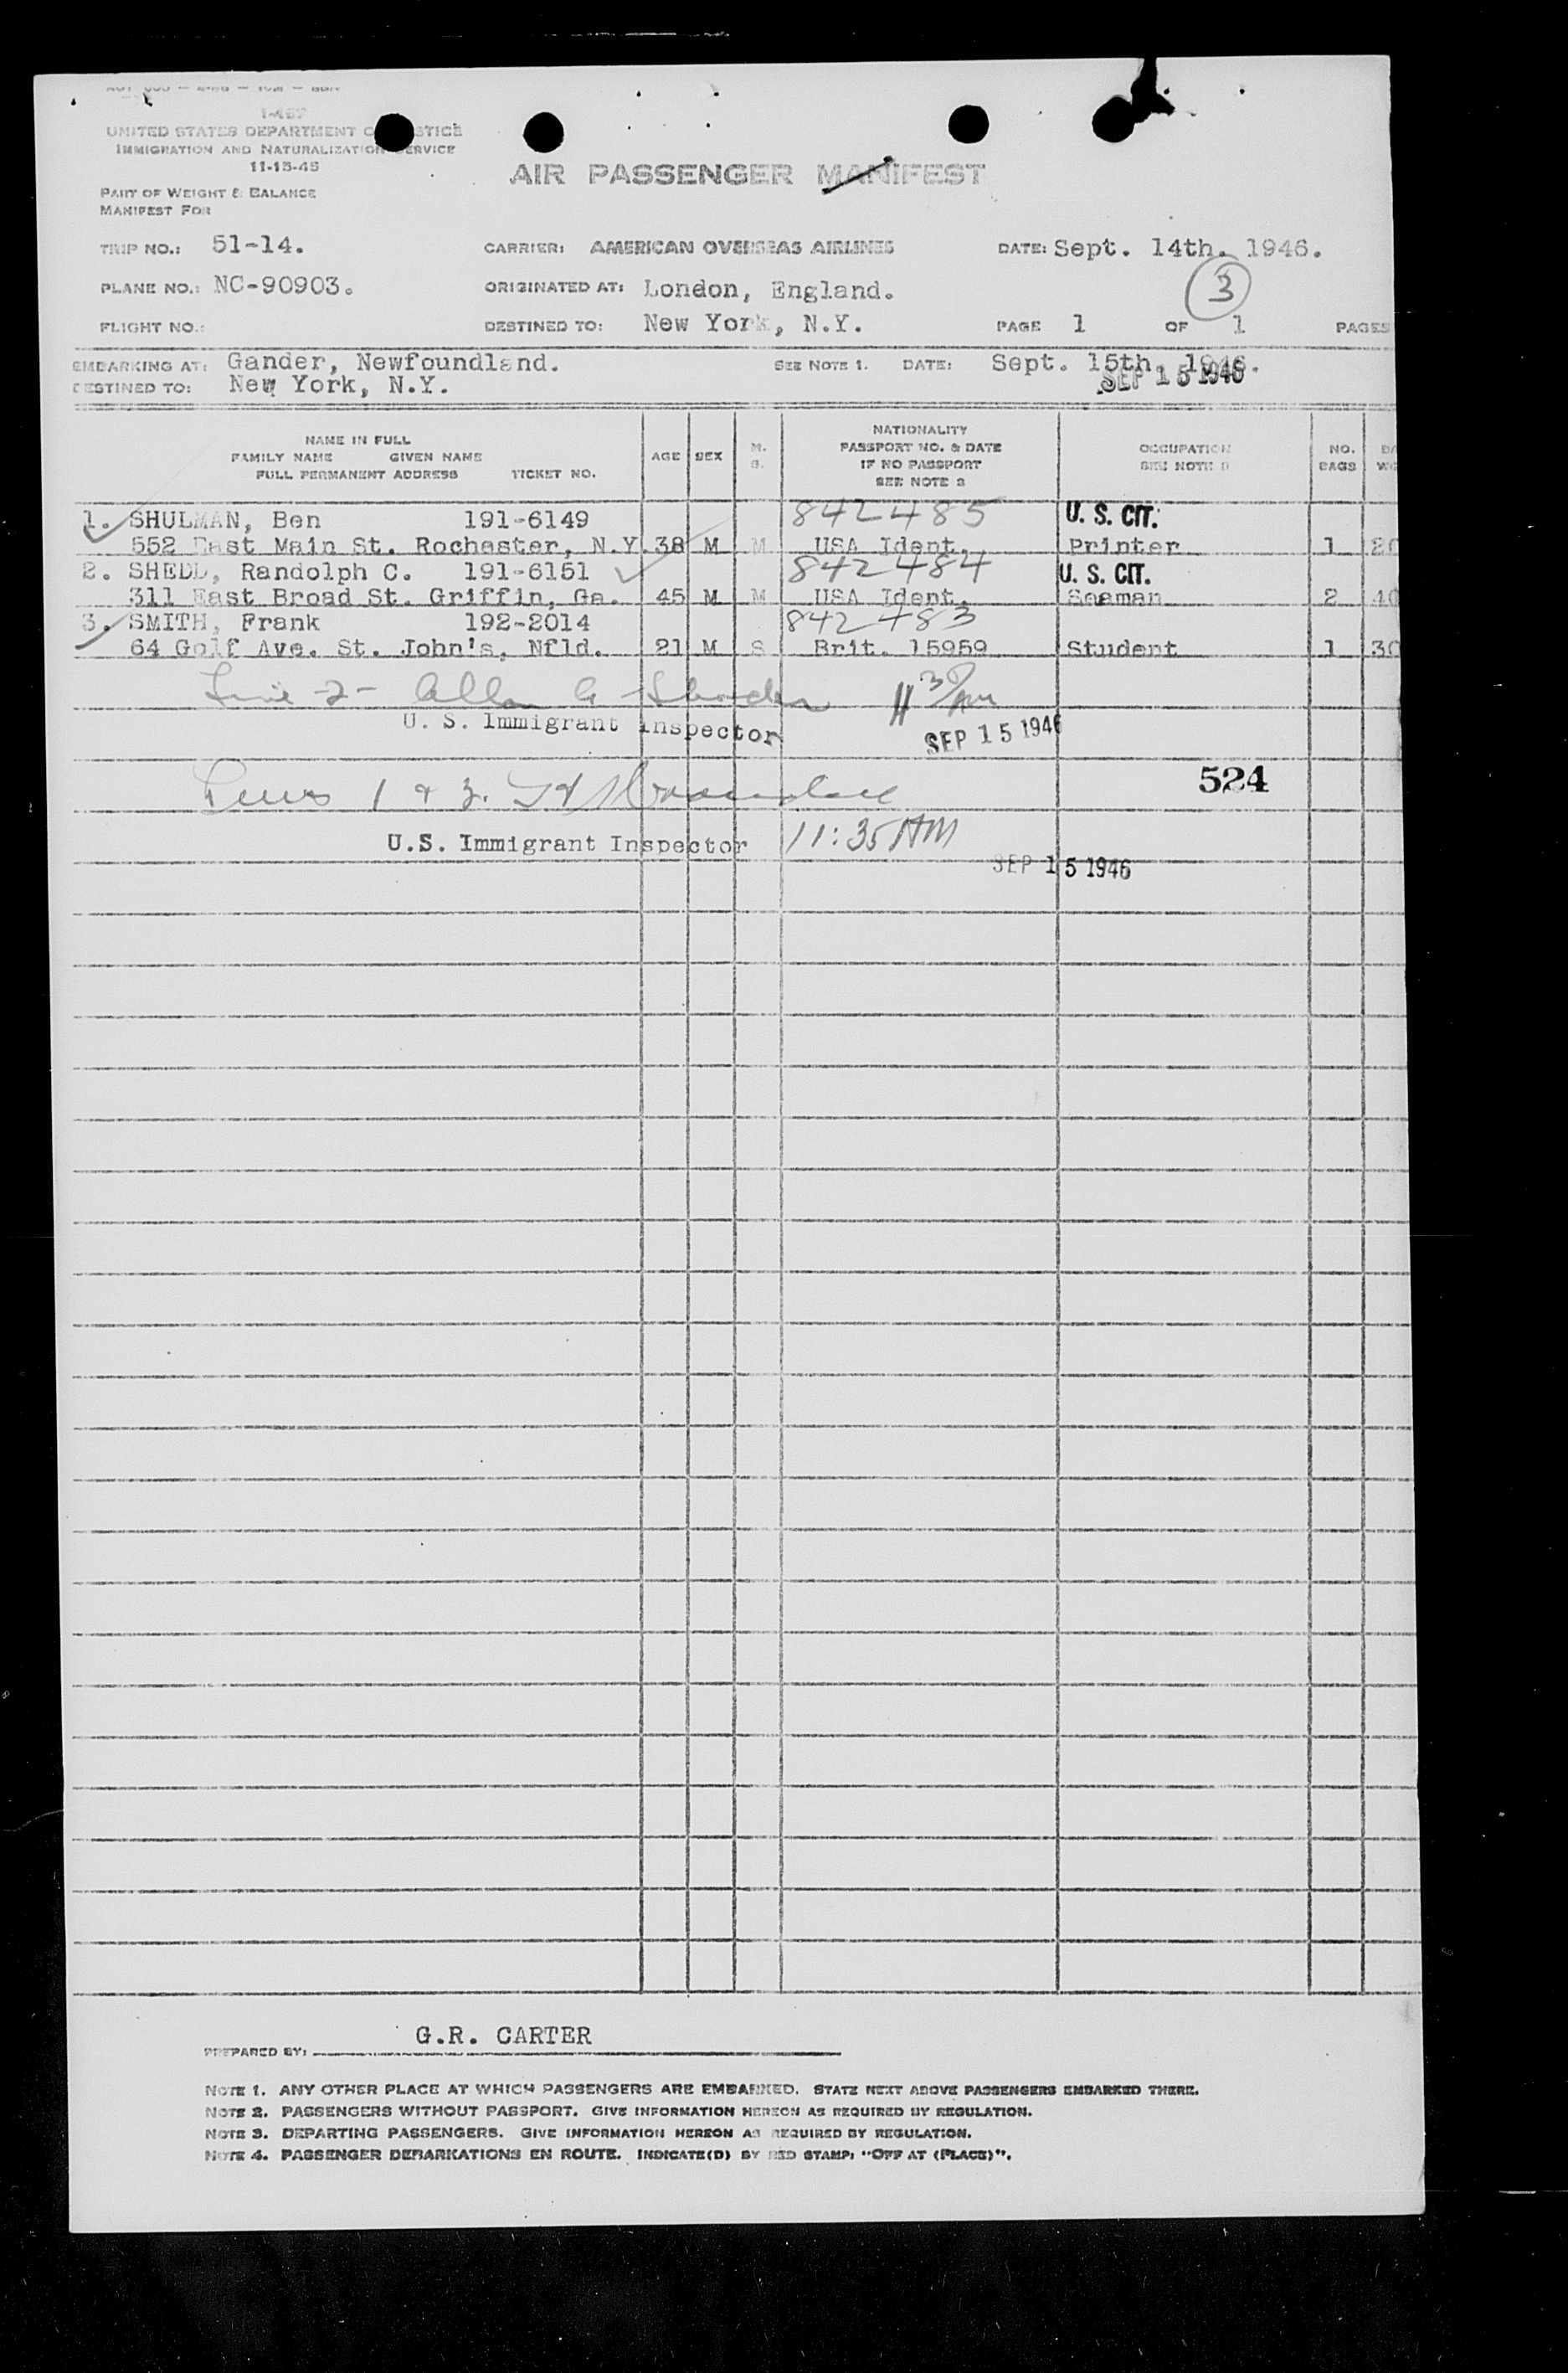 I-467
UNITED STATES DEPARTMENT O STICE
IMMIGRATION AND NATURALIZATION SERVICE
11-15-45
AIR PASSENGER MANIFEST
PART OF WEIGHT & BALANCE
MANIFEST FOR
TRIP NO.: 51-14. CARRIER: AMERICAN OVERSEAS AIRLINES DATE: Sept. 14th. 1946.
3
PLANE NO.: NC-90903. ORIGINATED AT: London, England.
FLIGHT NO.: DESTINED TO: New York, N.Y. PAGE 1 OF 1 PAGES
EMBARKING AT: Gander, Newfoundland. SEE NOTE 1. DATE: Sept. 15th. 1946.
DESTINED TO: New York, N.Y. SEP 15 1946
NAME IN FULL
FAMILY NAME GIVEN NAME
FULL PERMANENT ADDRESS TICKET NO.
AGE SEX M. S.
NATIONALITY
PASSPORT NO. & DATE
IF NO PASSPORT
SEE NOTE 2
OCCUPATION
SEE NOTE
NO. BAGS
1. SHULMAN, Ben 191-6149 842485 U. S. CIT.
552 East Main St. Rochester, N.Y. 38 M M USA Ident. Printer 1 20
2. SHEDD, Randolph C. 191-6151 842484 U. S. CIT.
311 East Broad St. Griffin, Ga. 45 M M USA Ident. Seaman 2 40
3. SMITH, Frank 192-2014 842483
64 Golf Ave. St. John's, Nfld. 21 M S Brit. 15959 Student 1 30
Line -2-
U. S. Immigrant Inspector SEP 15 1946
524
Lines 1 & 3.
U.S. Immigrant Inspector 11:35 AM
SEP 15 1946
G.R. CARTER
PREPARED BY:
NOTE 1. ANY OTHER PLACE AT WHICH PASSENGERS ARE EMBARKED. STATE NEXT ABOVE PASSENGERS EMBARKED THERE.
NOTE 2. PASSENGERS WITHOUT PASSPORT. GIVE INFORMATION HEREON AS REQUIRED BY REGULATION.
NOTE 3. DEPARTING PASSENGERS. GIVE INFORMATION HEREON AS REQUIRED BY REGULATION.
NOTE 4. PASSENGER DEBARKATIONS EN ROUTE. INDICATE(D) BY RED STAMP: "OFF AT (PLACE)".